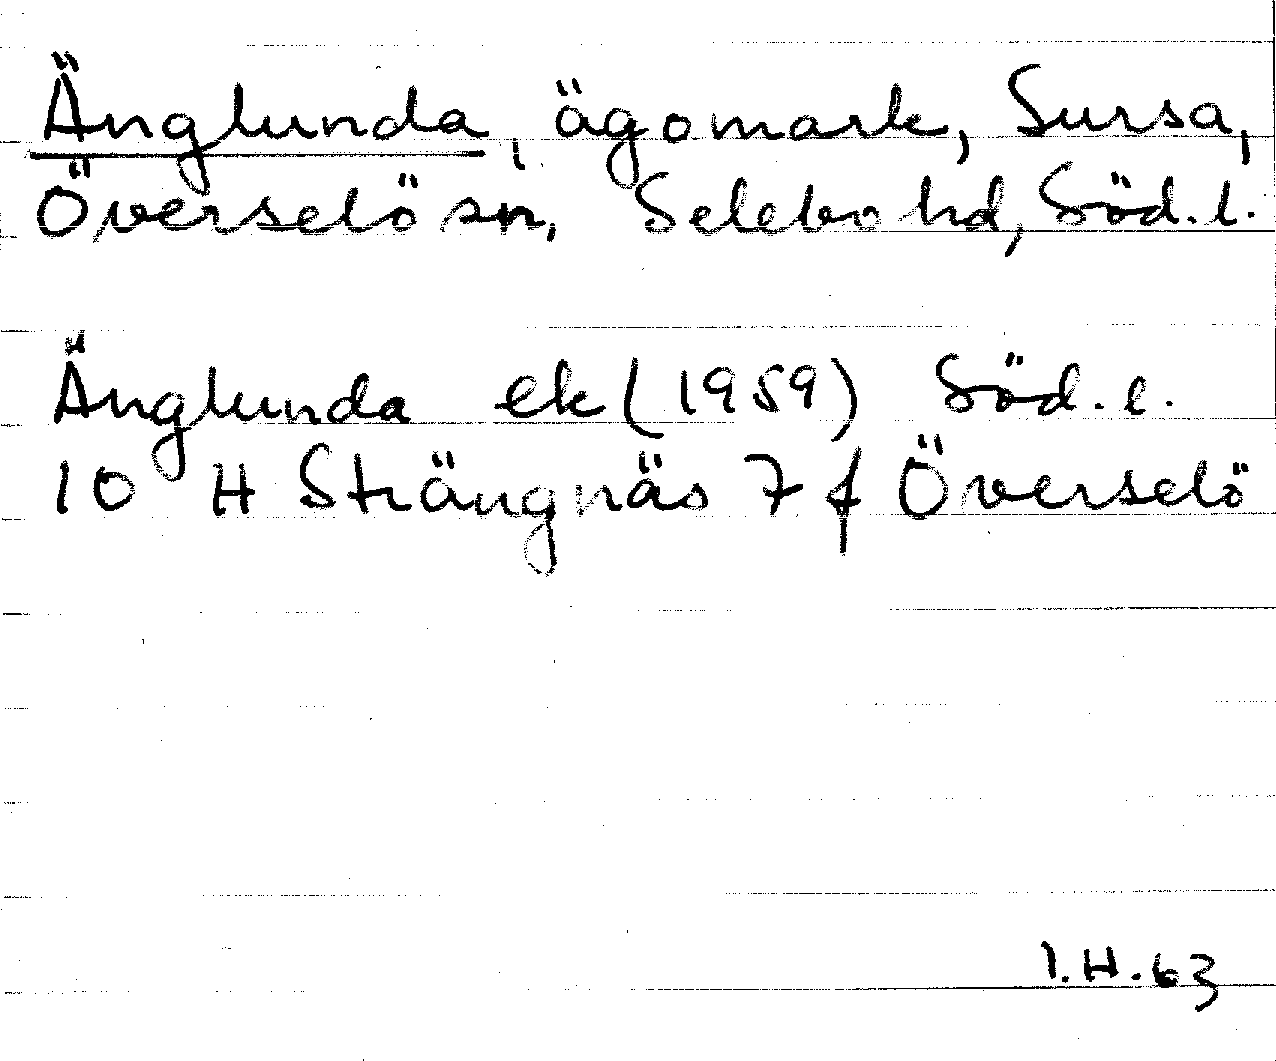 Änglunda, ägomark, Sursa,
Överselö sn, Selebo hd, Söd.l.
Änglunda ek (1959) Söd.l.
10 H Strängnäs 7 f Överselö
I.H.63